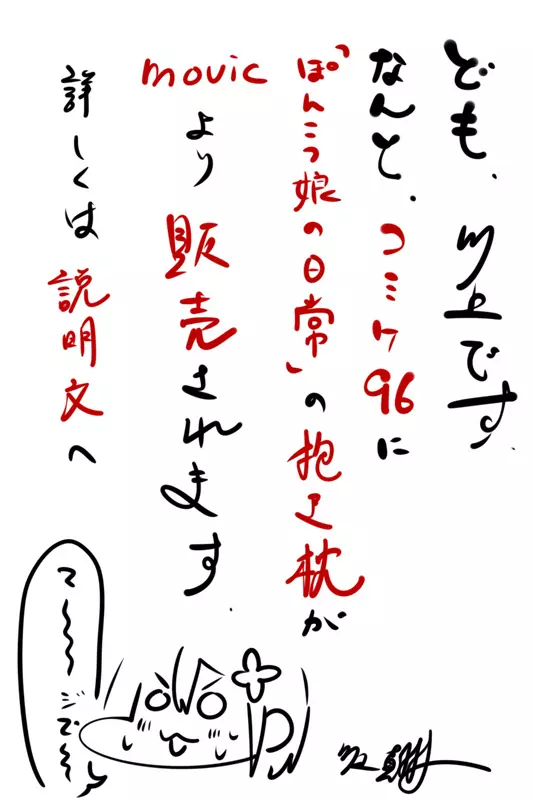 ども、川上です。
なんと、コミケ96に
「ぽんこつ娘の日常」の抱き枕が
movicより販売されます。
詳しくは説明文へ
て〜〜〜ジで〜
川上真樹